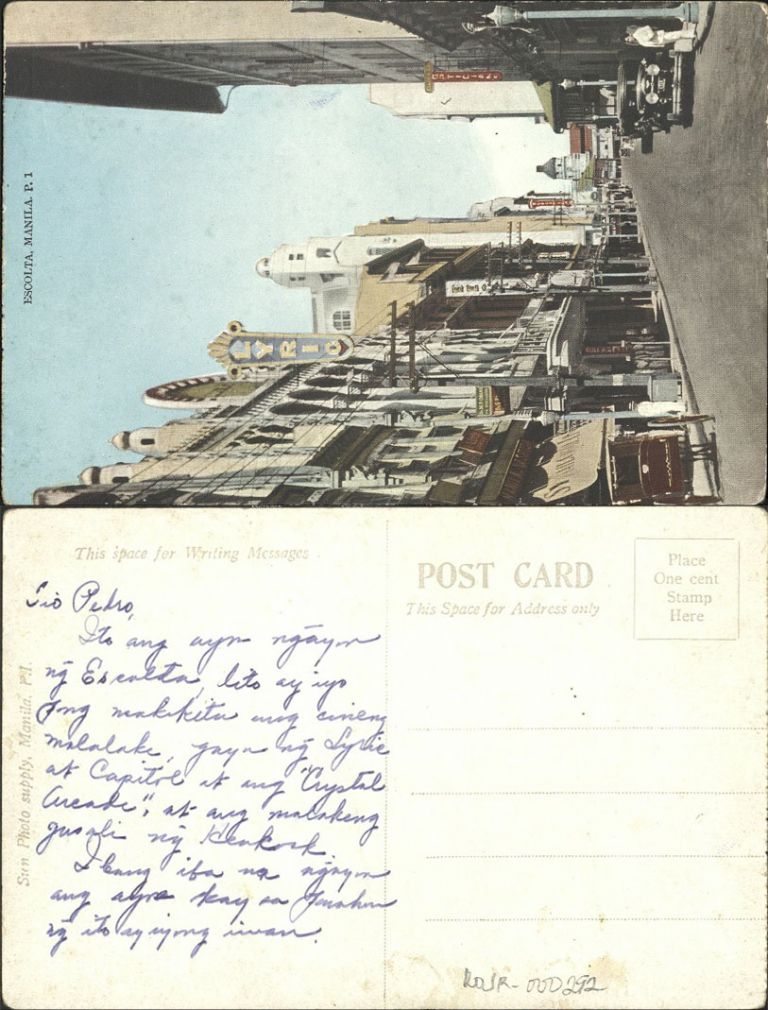 ESCOLTA, MANILA, P. 1
OPTICIAN
LYRIC
This space for Writing Messages
POST CARD
This Space for Address only
Place
One cent
Stamp
Here
Sun Photo supply, Manila, P.I.
Tio Pedro,
Ito ang ayre ngayon
ng Escolta, dito ay iyo
ong makikita ang cineng
malalake, gaya ng Lyric
at Capitol at ang "Crystal
Arcade", at ang malakeng
gusali ng Heakock.
Ibang iba na ngayon
ang ayre kay sa panahon
ng ito ay iyong iwan.
ROJR-000292